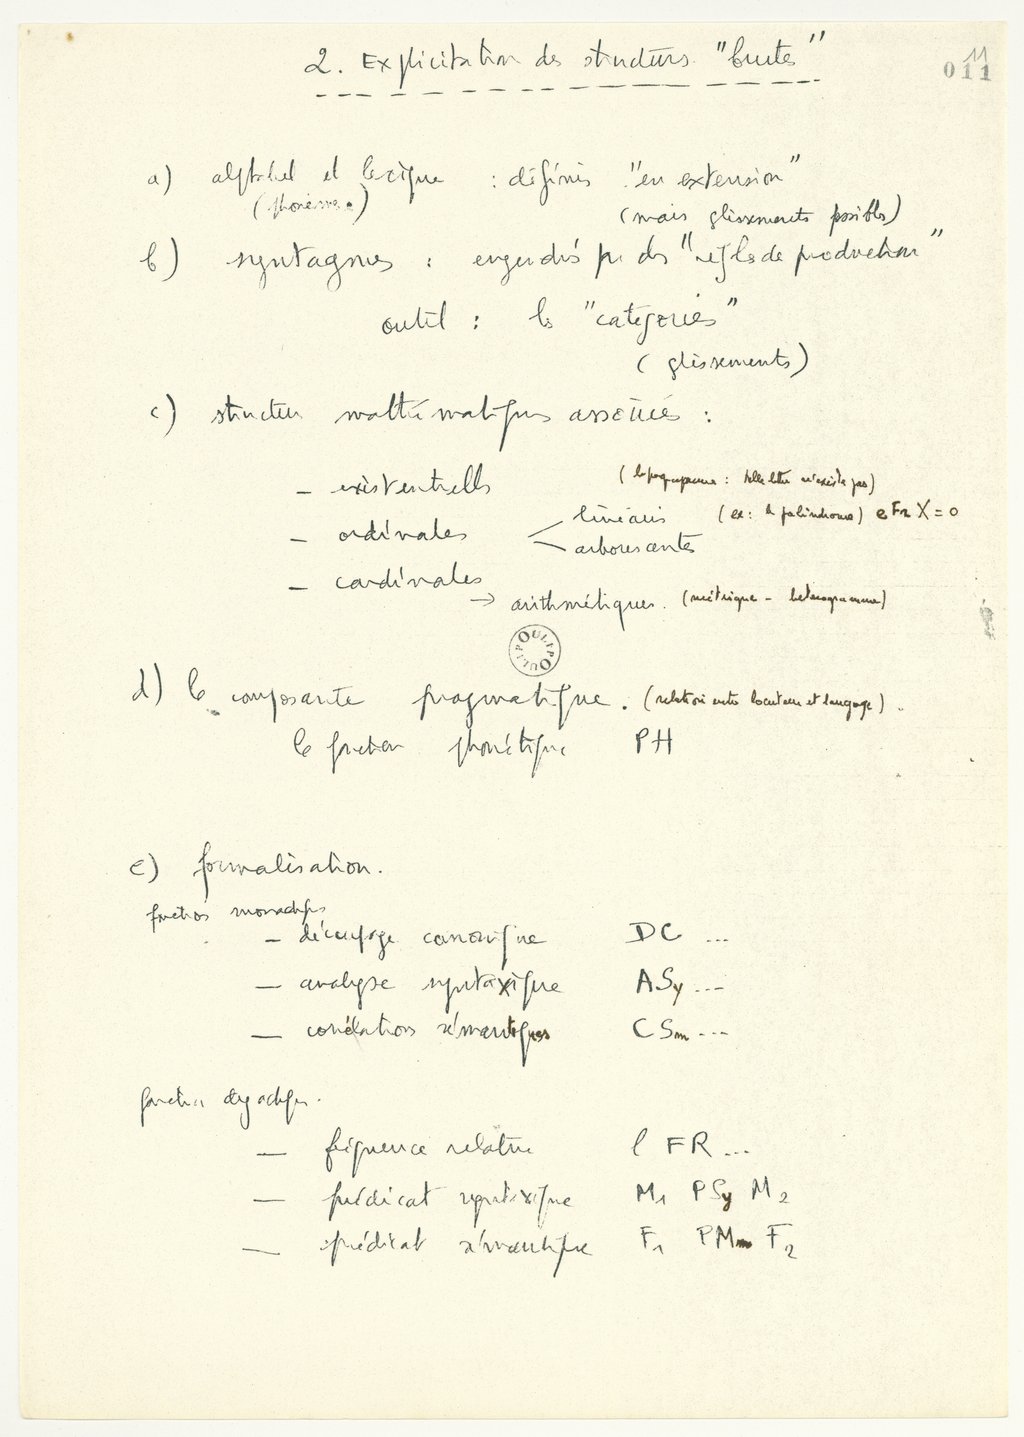 2. Explicitation des structures "brutes"
011
11
a) alphabet et lexique : définis "en extension"
(phonèmes) (mais glissements possibles)
b) syntagmes : engendrés par des "règles de production"
outil : les "catégories"
(glissements)
c) structures mathématiques associées :
– existentielles (lipogramme : telle lettre n'existe pas)
– ordinales < linéaires (ex : le palindrome) e FR X = 0
arborescentes
– cardinales
→ arithmétiques. (métrique – hétérogramme)
OULIPO OULIPO
d) la composante pragmatique. (relation entre locuteur et langage).
la fonction phonétique PH
e) formalisation.
fonctions monadiques
– découpage canonique DC ...
– analyse syntaxique ASy ...
– corrélations sémantiques CSm ...
fonctions dyadiques.
– fréquence relative l FR ...
– prédicat syntaxique M1 PSy M2
– prédicat sémantique F1 PMm F2